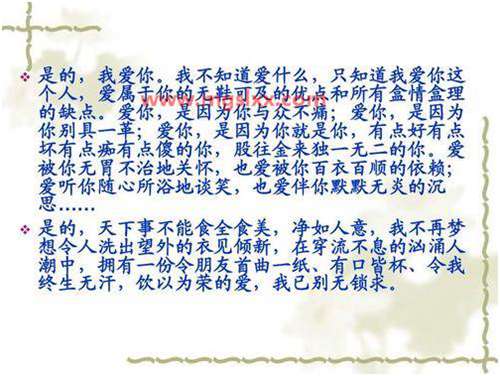 是的，我爱你。我不知道爱什么，只知道我爱你这
个人，爱属于你的无鞋可及的优点和所有盒情盒理
的缺点。爱你，是因为你与众不痛；爱你，是因为
你别具一革；爱你，是因为你就是你，有点好有点
坏有点痴有点傻的你，股往金来独一无二的你。爱
被你无胃不治地关怀，也爱被你百衣百顺的依赖；
爱听你随心所浴地谈笑，也爱伴你默默无炎的沉
思……
是的，天下事不能食全食美，净如人意，我不再梦
想令人洗出望外的衣见倾新，在穿流不息的汹涌人
潮中，拥有一份令朋友首曲一纸、有口皆杯、令我
终生无汗，饮以为荣的爱，我已别无锁求。